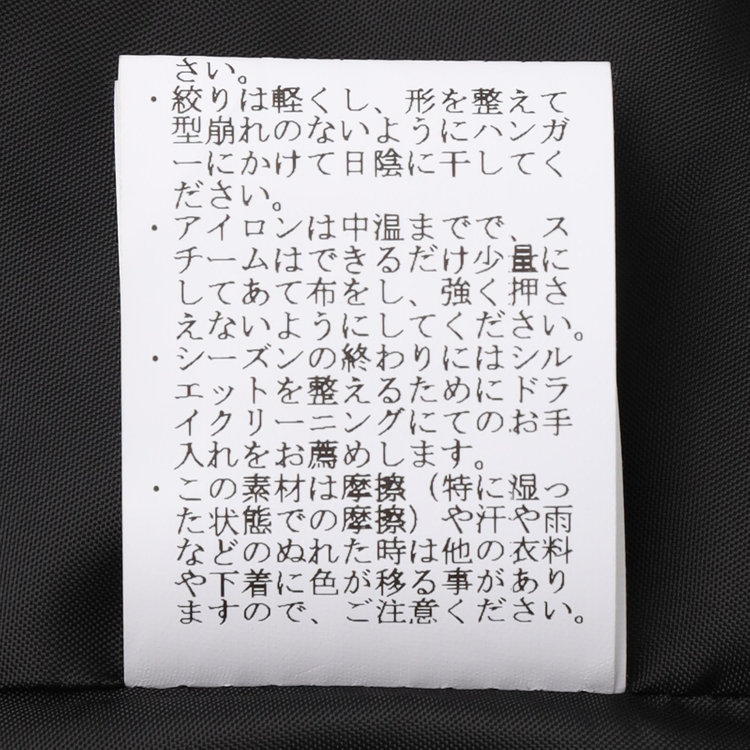 さい。
・絞りは軽くし、形を整えて
型崩れのないようにハンガ
ーにかけて日陰に干してく
ださい。
・アイロンは中温までで、ス
チームはできるだけ少量に
してあて布をし、強く押さ
えないようにしてください。
・シーズンの終わりにはシル
エットを整えるためにドラ
イクリーニングにてのお手
入れをお薦めします。
・この素材は摩擦（特に湿っ
た状態での摩擦）や汗や雨
などのぬれた時は他の衣料
や下着に色が移る事があり
ますので、ご注意ください。